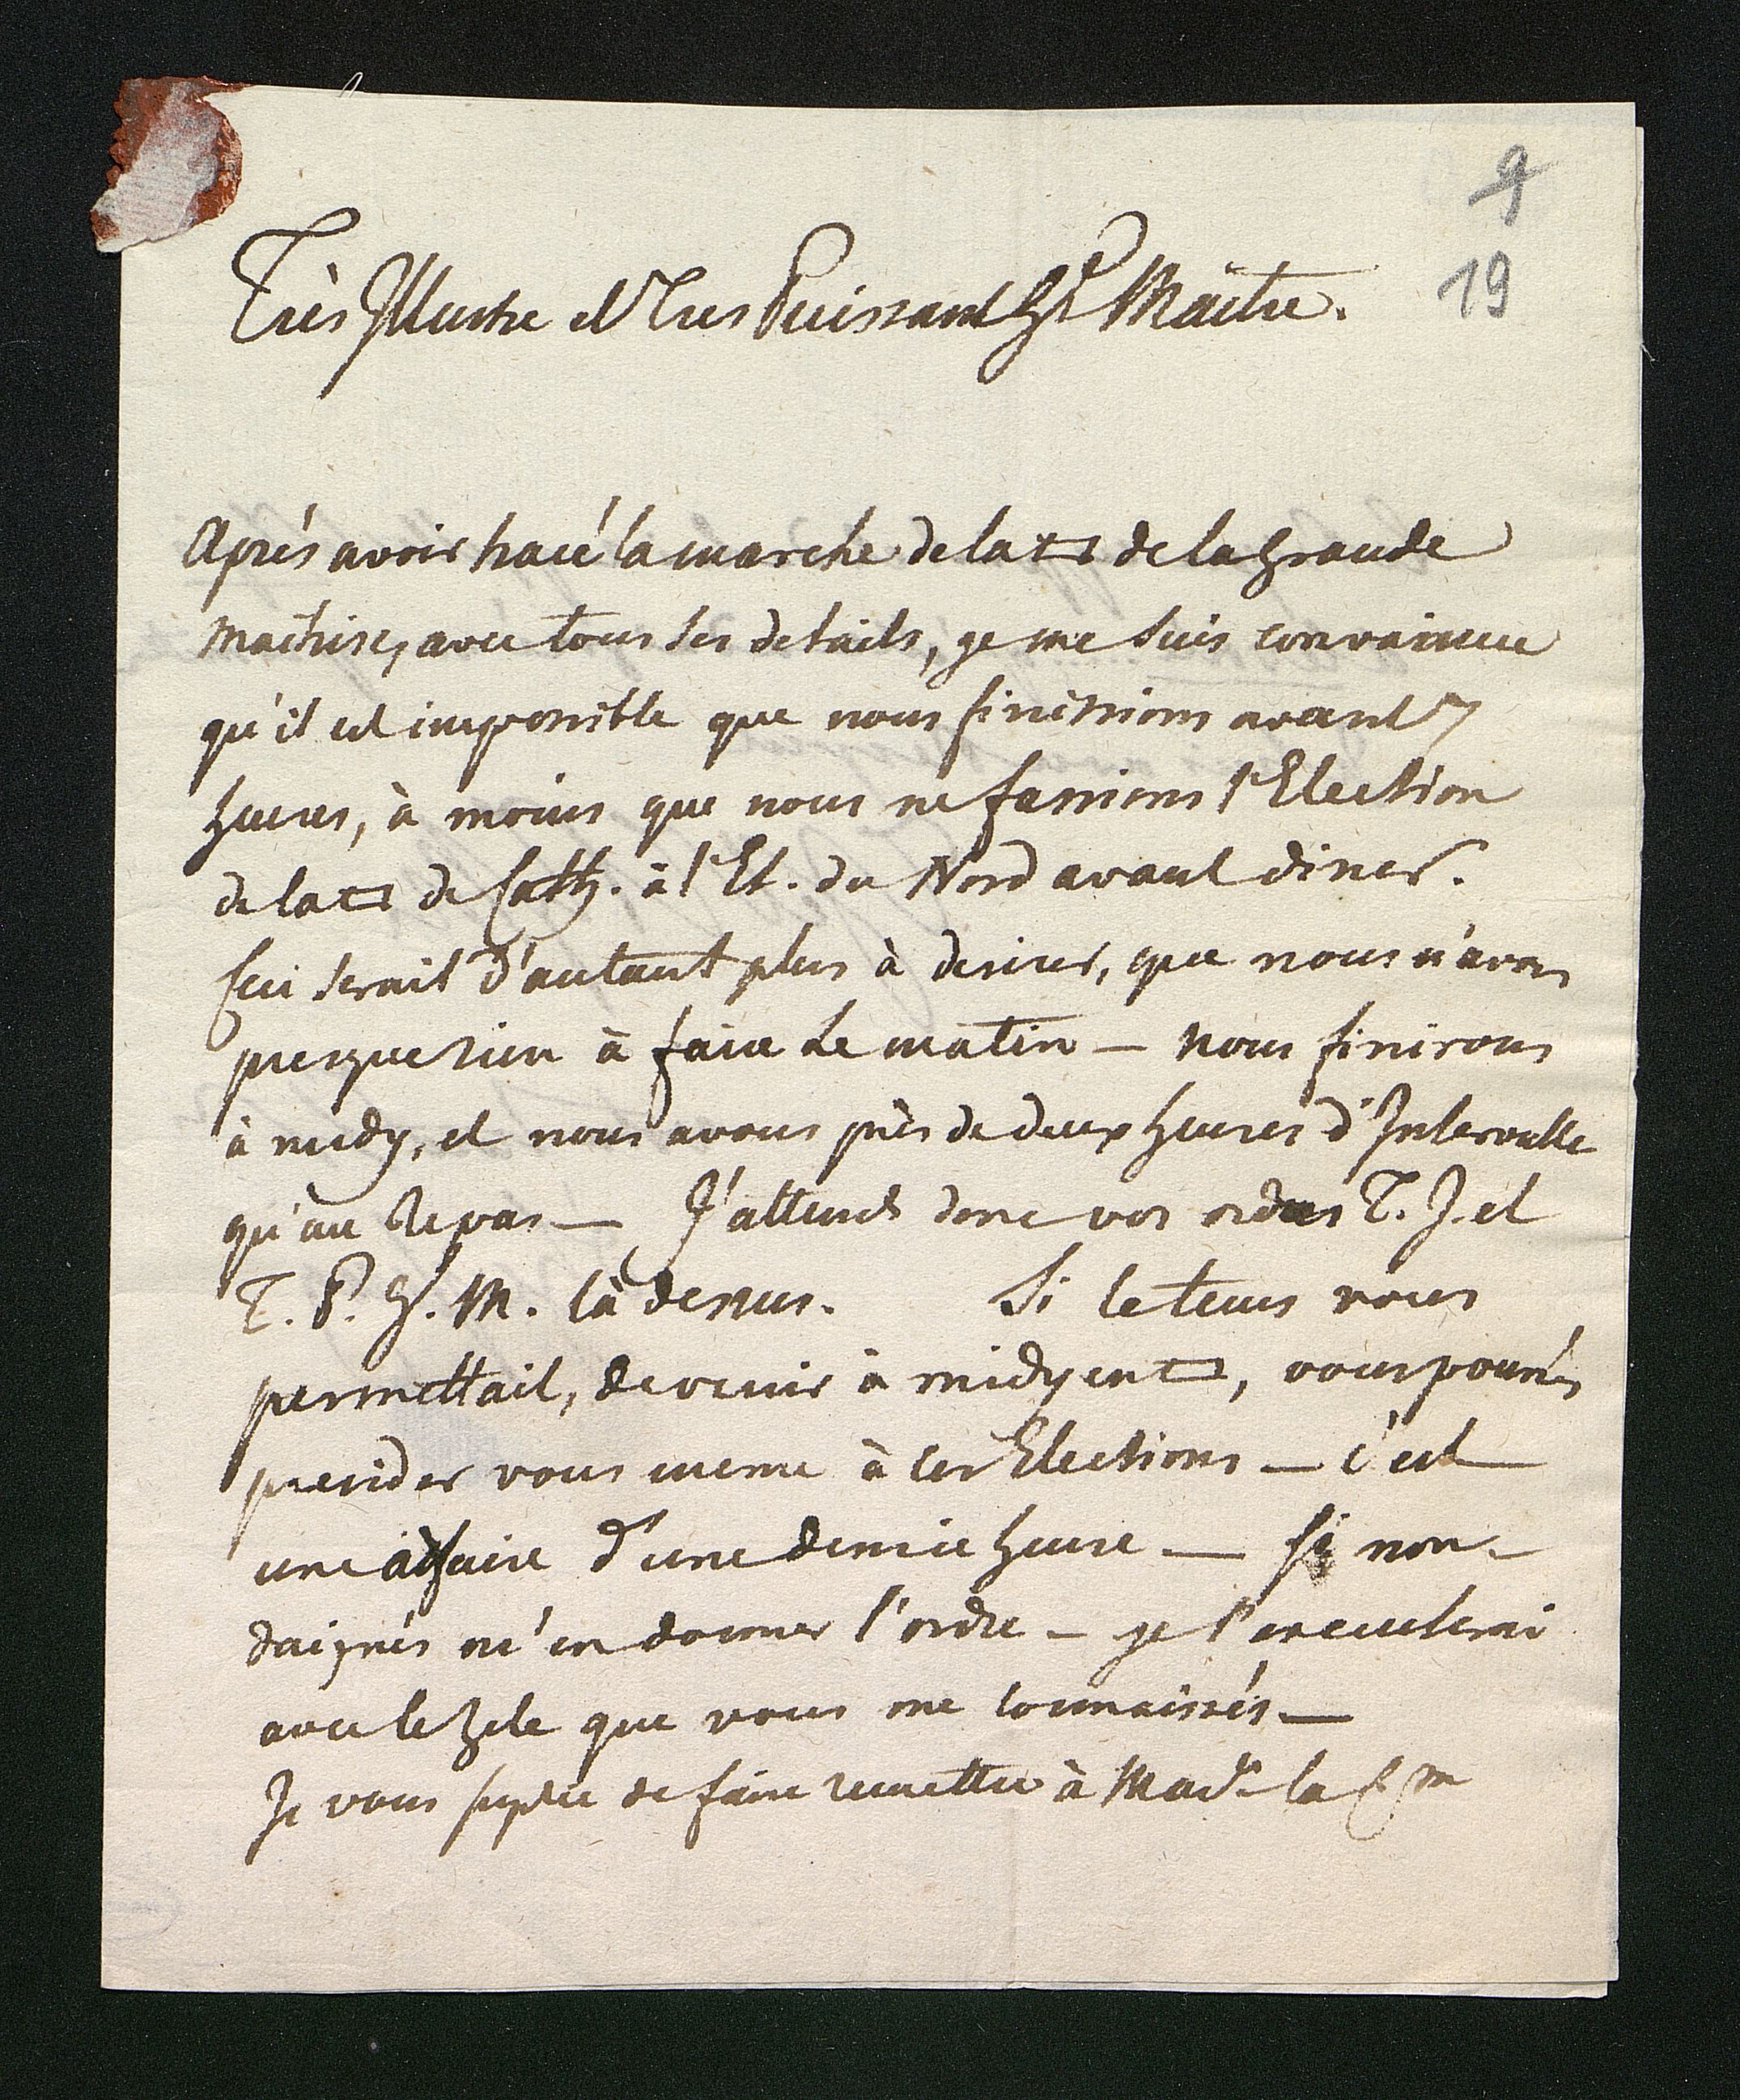 9
19
Très Illustre et Tres Puissant Gd Maitre.
Aprés avoir tracé la marche de la ▭ de la Grande
Maitrise, avec tous ses details, je me suis convaincue
qu'il est impossible que nous finissions avant 7
heures, à moins que nous ne fassions l'Election
de la ▭ de Cath. à l'Et. du Nord avant diner.
Ceci serait d'autant plus à desirer, que nous n'avons
presque rien à faire le matin — nous finirons
à midy, et nous avons près de deux heures d'Intervalle
qu'au Repas — J'attends donc vos ordres T. I. et
T. P. G. M. là dessus. Si le tems vous
permettait, de venir à midy en ▭, vous pourrés
presider vous meme à ces Elections — c'est
une affaire d'une demie heure — Si non –
daignés m'en donner l'ordre – je l'executerai
avec le zele que vous me connaissés —
Je vous suplie de faire remettre à Made la